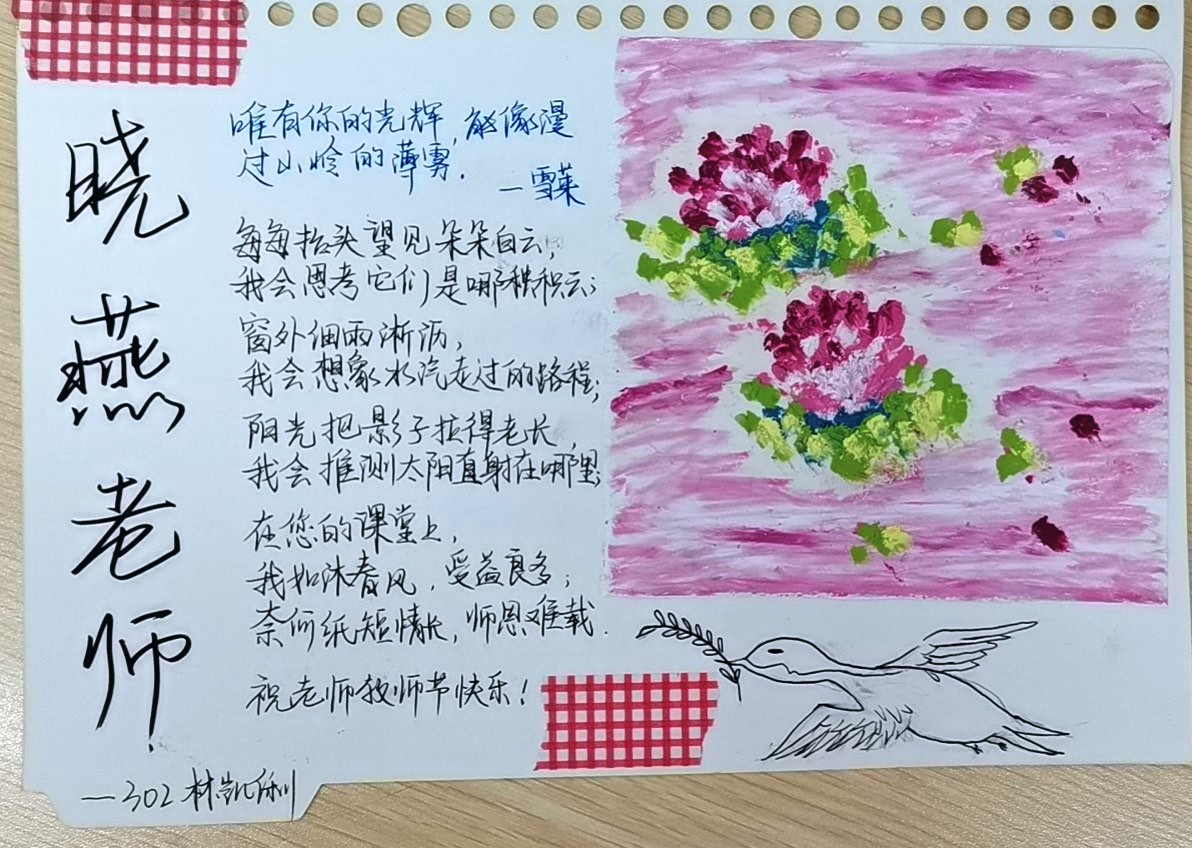 晓燕老师
唯有你的光辉,能像漫
过山岭的薄雾.
—雪莱
每每抬头望见朵朵白云,
我会思考它们是哪种积云;
窗外细雨淅沥,
我会想象水汽走过的路程;
阳光把影子拉得老长,
我会推测太阳直射在哪里;
在您的课堂上,
我如沐春风,受益良多;
奈何纸短情长,师恩难载.
祝老师教师节快乐!
—302 林凯俐